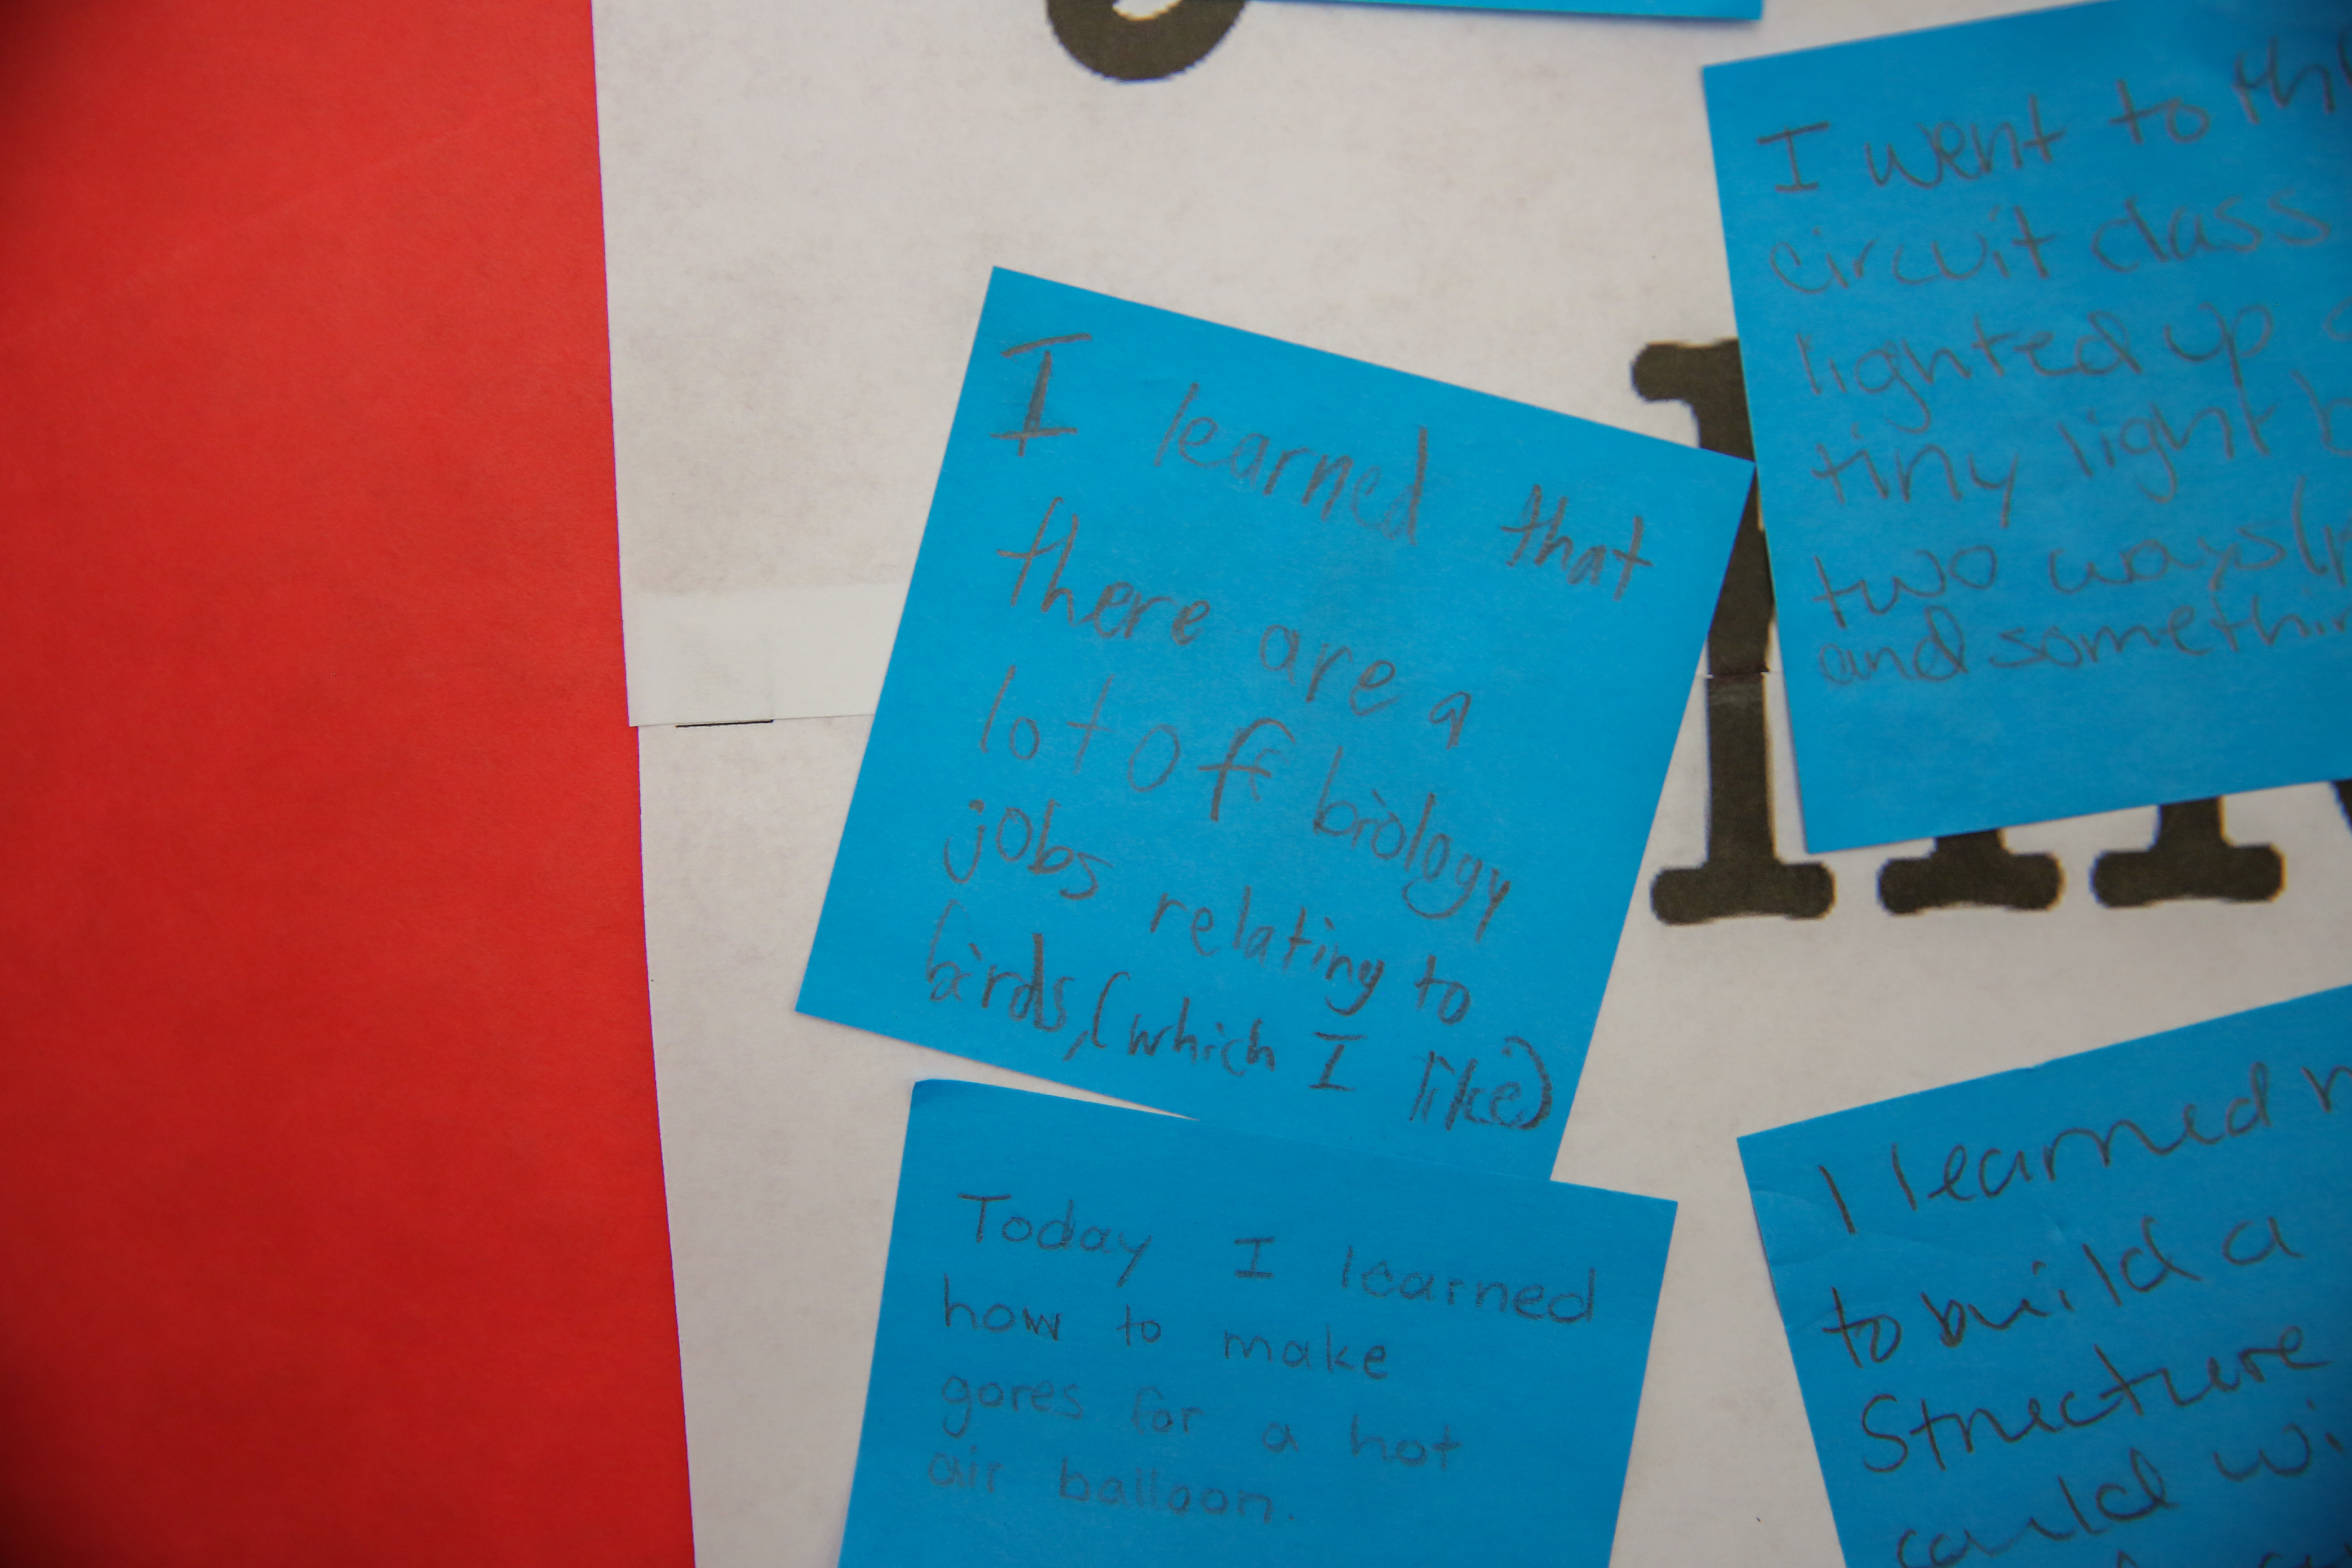 I learned that
there are a
lot of biology
jobs relating to
birds, (which I like)
Today I learned
how to make
gores for a hot
air balloon.
I went to
circuit class
lighted up
tiny light
two ways
and
I learned
to build a
Structure
could